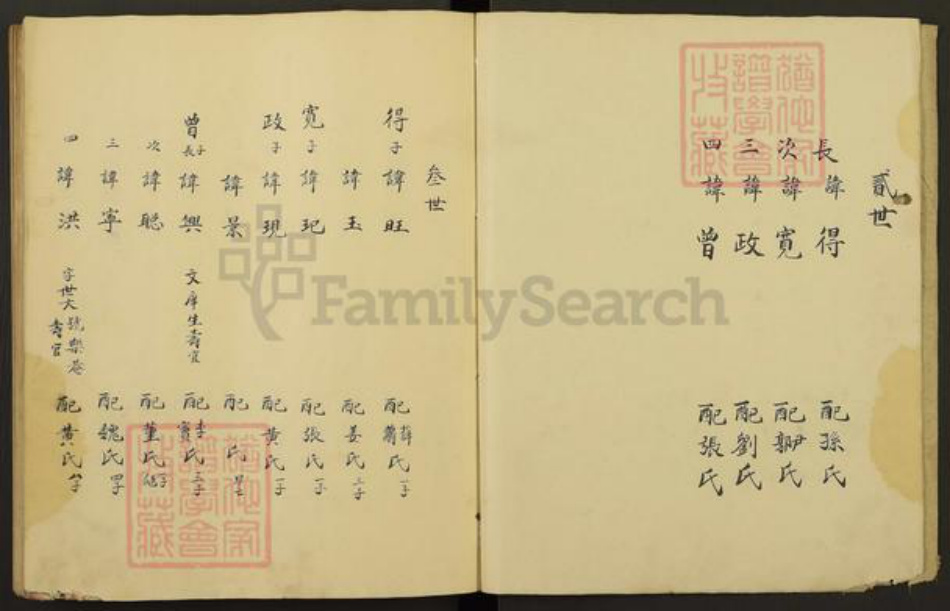 貳世
長諱得 配孫氏
次諱寬 配郭氏
三諱政 配劉氏
四諱曾 配張氏
叄世
得子諱旺 配薛蕭氏一子
諱玉 配姜氏二子
寬子諱玘 配張氏一子
政子諱現 配黃氏一子
諱景 配氏
曾長子諱興 文庠生壽官 配李竇氏三子
次諱聰 配董氏
三諱寧 配魏氏四子
四諱洪 字世大號樂菴壽官 配黃氏
FamilySearch